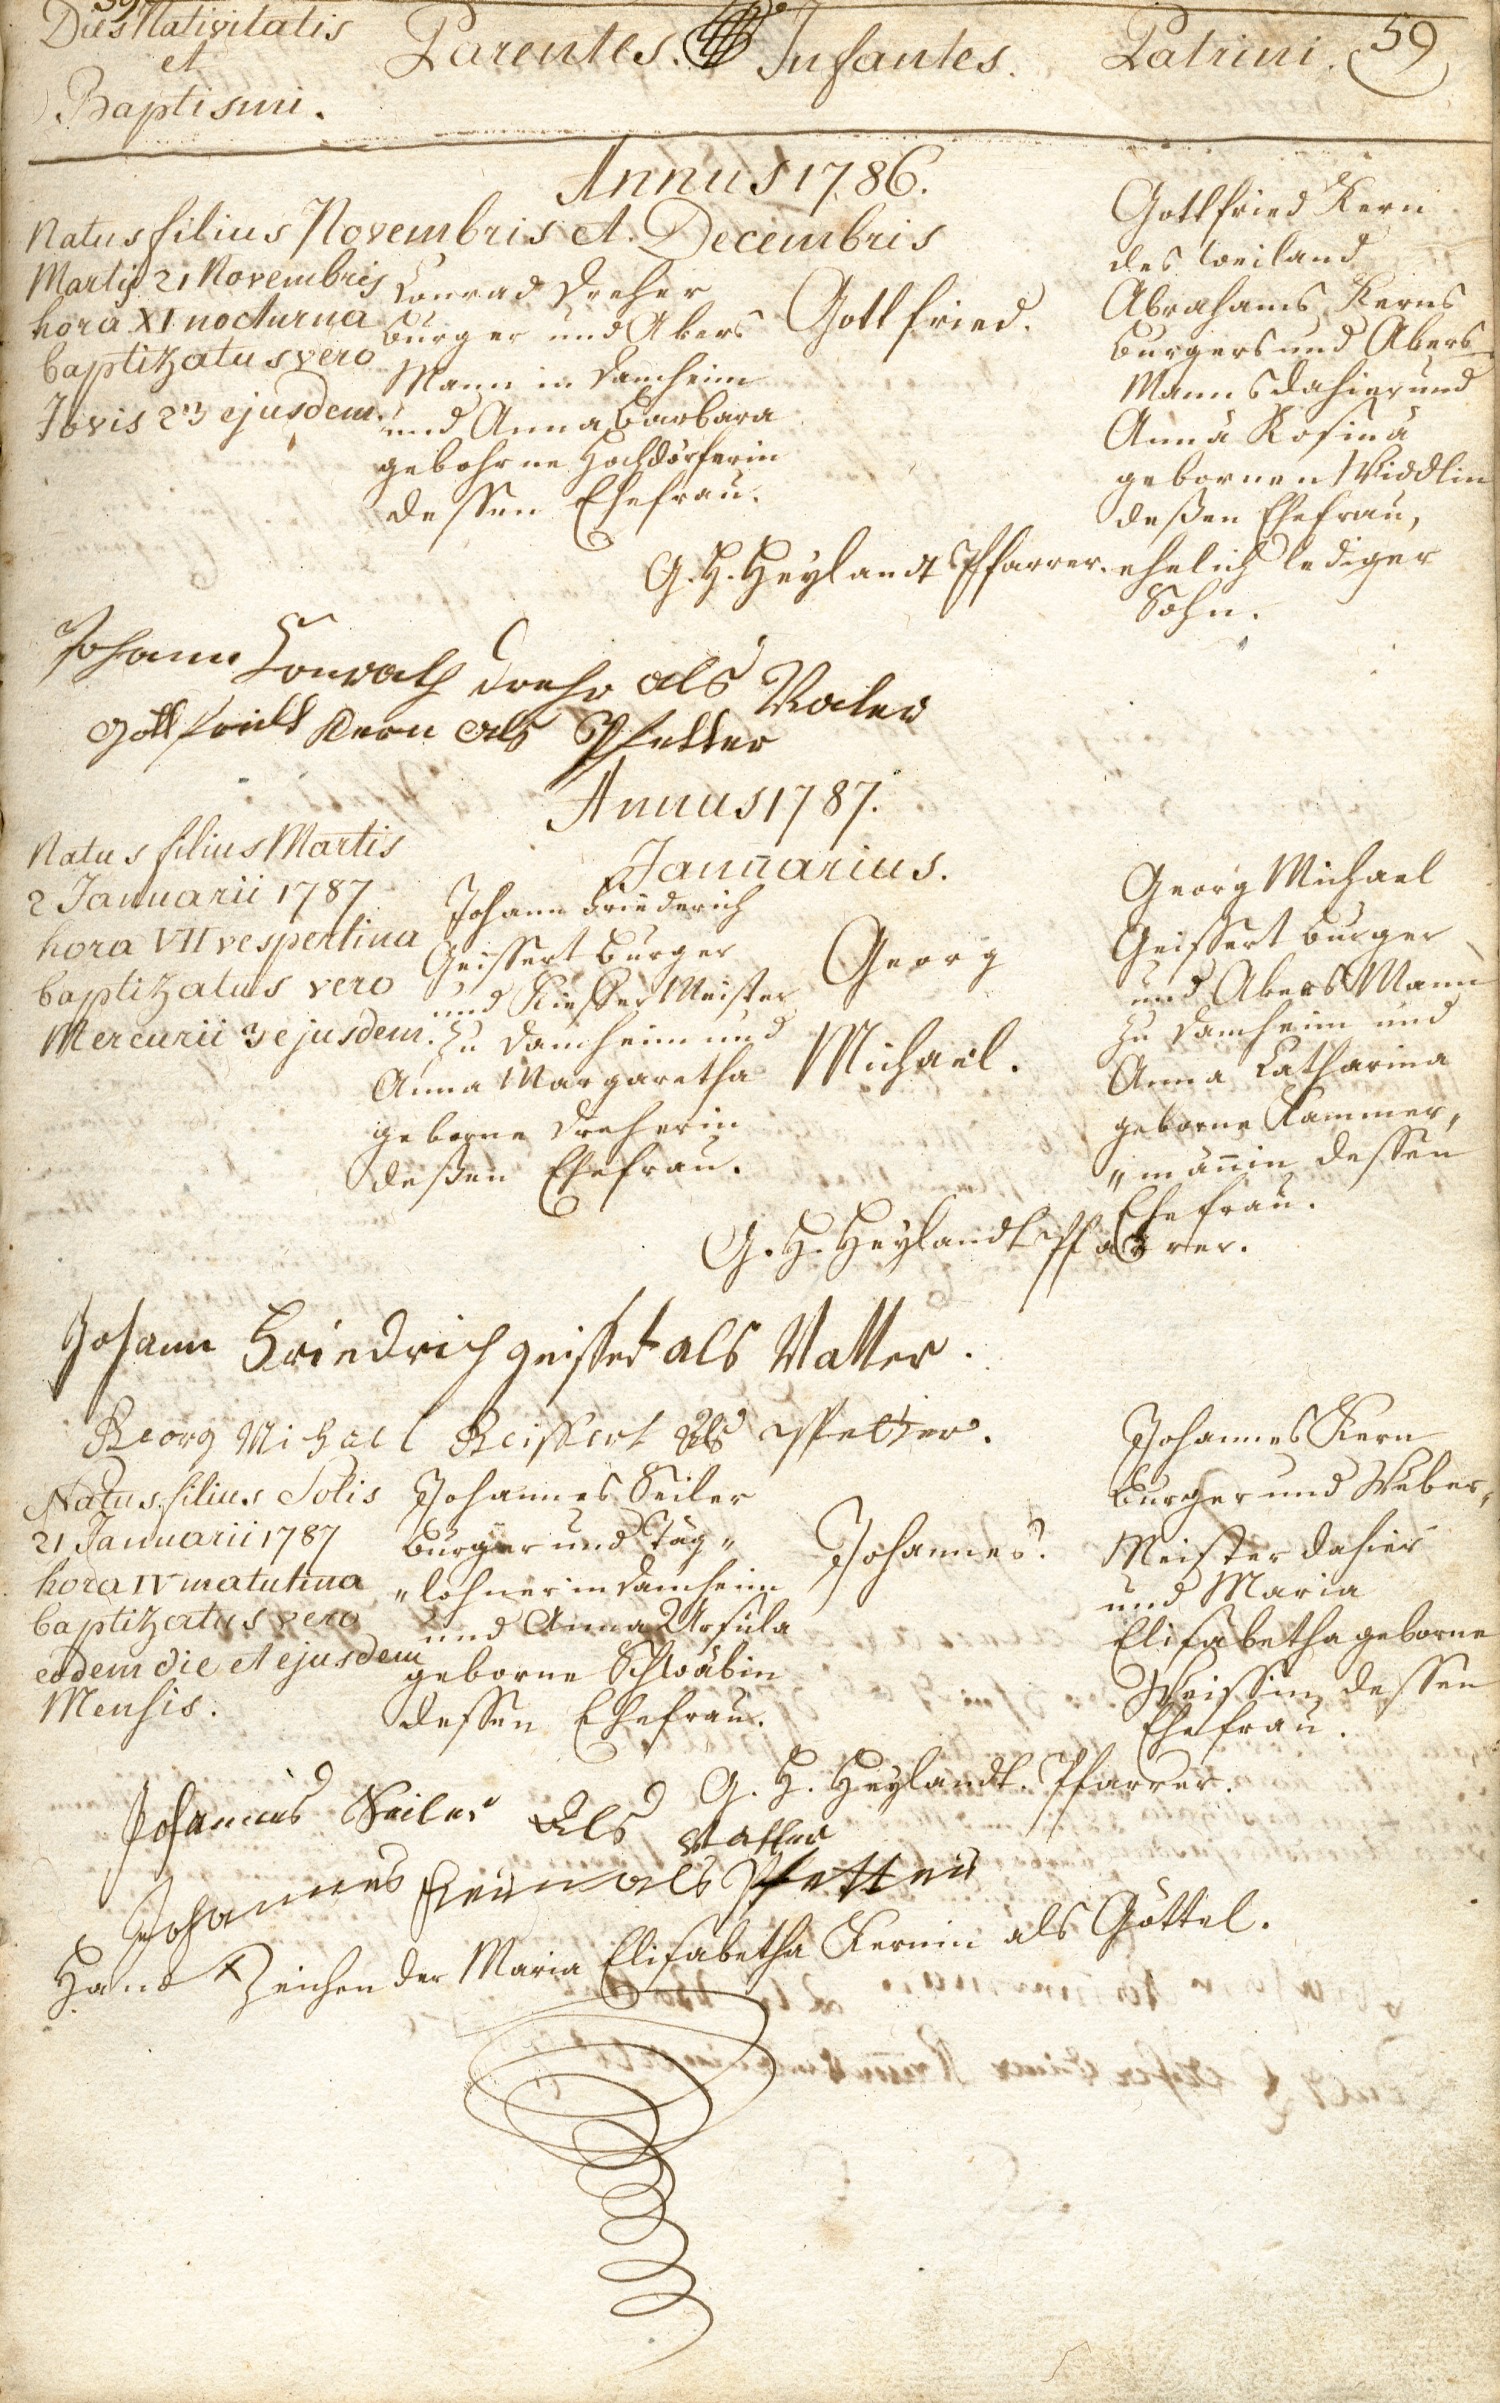 59
Dies Nativitatis
et
Baptismi.
Parentes.
Infantes.
Patrini.
59
Annus 1786.
Novembris et Decembris
Natus filius
Martis 21 Novembris
hora XI nocturna
baptizatus vero
Jovis 23 ejusdem.
Conrad Dreher
burger und Akers
Mann in Damheim
und Anna Barbara
gebohrne Hochdörferin
dessen Ehefrau.
Gottfried.
Gottfried Kern
des weiland
Abrahams Kerns
burgers und Akers
Manns dahier und
Anna Rosina
gebornen Widdlin
deßen Ehefrau,
ehelich lediger
Sohn.
G. H. Heylandt Pfarrer.
Johann Conrath Drehr als Vater
Gottfridt Kern als Pfetter
Annus 1787.
Januarius.
Natus filius Martis
2 Januarii 1787
hora VII vespertina
baptizatus vero
Mercurii 3 ejusdem.
Johann Friederich
Geissert burger
und Kieffer Meister
zu Damheim und
Anna Margaretha
geborne Dreherin
deßen Ehefrau.
Georg
Michael.
Georg Michael
Geissert burger
und Akers Mann
zu Damheim und
Anna Catharina
geborne Kammer„
„männin dessen
Ehefrau.
G. H. Heylandt Pfarrer.
Johann Friedrich geissert als Vatter.
Georg Michael Geissert Als Pfetter.
Natus filius Solis
21 Januarii 1787
hora IV matutina
baptizatus vero
eodem die et ejusdem
Mensis.
Johannes Seiler
burger und Tag„
„löhner in Damheim
und Anna Ursula
geborne Schwäbin
dessen Ehefrau.
Johannes.
Johannes Kern
burger und Weber„
Meister dahier
und Maria
Elisabetha geborne
Weissin dessen
Ehefrau.
G. H. Heylandt. Pfarrer.
Johannes Seiler Als Vatter
Johannes Kern als Pfetter
Hand X Zeichen der Maria Elisabetha Kernin als Göttel.